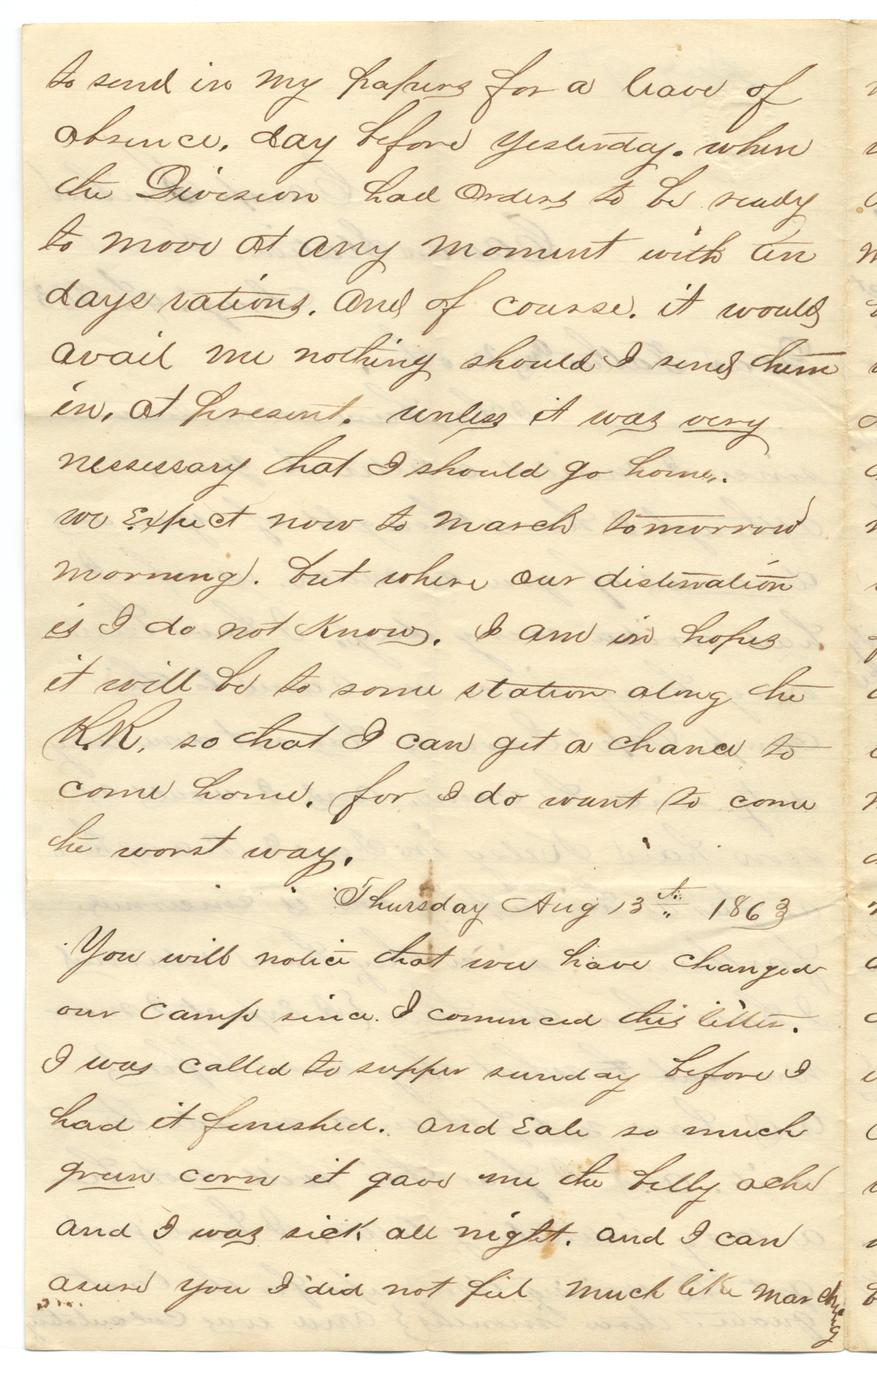 to send in my papers for a leave of
absence. day before yesterday. when
the Division had Orders to be ready
to move at any moment with ten
days rations. And of course. it would
avail me nothing should I send them
in, at present. unless it was very
nessessary that I should go home.
we Expect now to march tomorrow
morning. but where our distination
is I do not know. I am in hopes
it will be to some station along the
R.R. so that I can get a chance to
come home. for I do want to come
the worst way.
Thursday Aug 13th 1863
You will notice that we have changed
our camp since I comenced this letter.
I was called to supper sunday before I
had it finished. and Eate so much
green corn it gave me the belly ache
and I was sick all night. and I can
asure you I did not feel much like marching